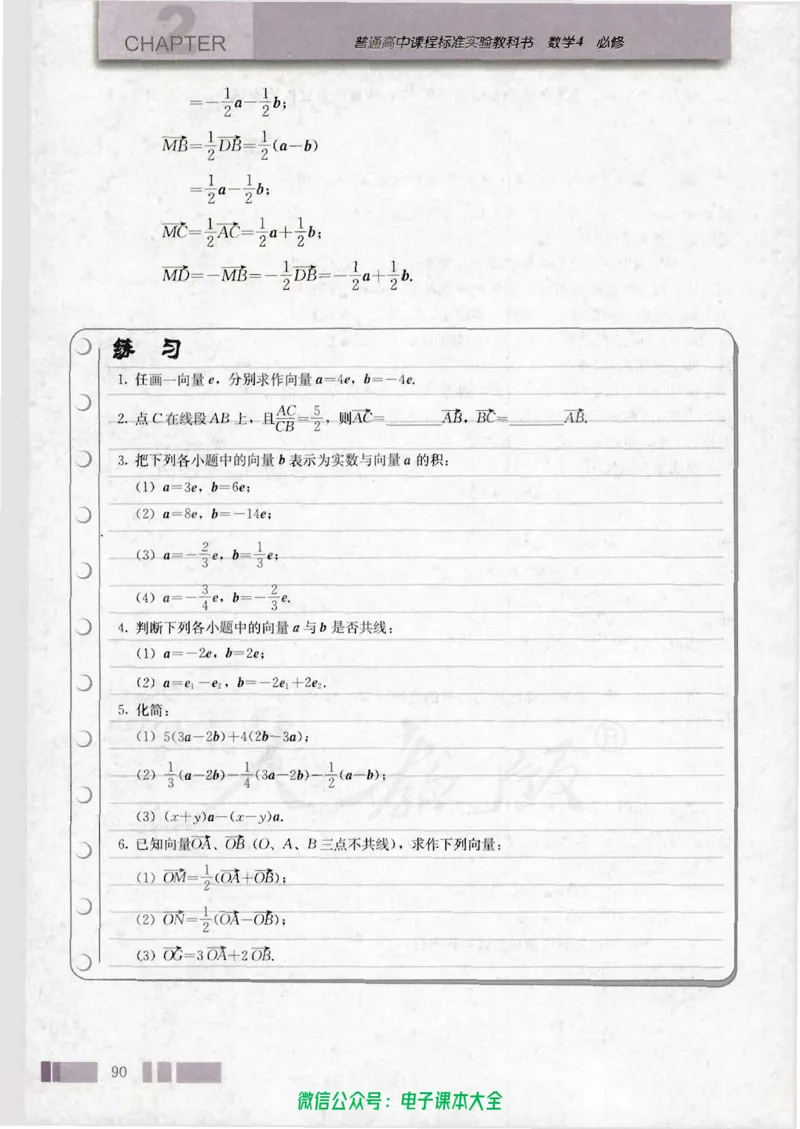 CHAPTER 2
普通高中课程标准实验教科书 数学4 必修
=-1/2 a-1/2 b;
MB→=1/2 DB→=1/2(a-b)
=1/2 a-1/2 b;
MC→=1/2 AC→=1/2 a+1/2 b;
MD→=-MB→=-1/2 DB→=-1/2 a+1/2 b.
练 习
1. 任画一向量 e，分别求作向量 a=4e，b=-4e.
2. 点 C 在线段 AB 上，且 AC/CB=5/2，则AC→=______AB→，BC→=______AB→.
3. 把下列各小题中的向量 b 表示为实数与向量 a 的积：
(1) a=3e，b=6e;
(2) a=8e，b=-14e;
(3) a=-2/3 e，b=1/3 e;
(4) a=-3/4 e，b=-2/3 e.
4. 判断下列各小题中的向量 a 与 b 是否共线：
(1) a=-2e，b=2e;
(2) a=e₁-e₂，b=-2e₁+2e₂.
5. 化简：
(1) 5(3a-2b)+4(2b-3a);
(2) 1/3(a-2b)-1/4(3a-2b)-1/2(a-b);
(3) (x+y)a-(x-y)a.
6. 已知向量OA→、OB→（O、A、B 三点不共线），求作下列向量：
(1) OM→=1/2(OA→+OB→);
(2) ON→=1/2(OA→-OB→);
(3) OG→=3 OA→+2 OB→.
90
微信公众号：电子课本大全